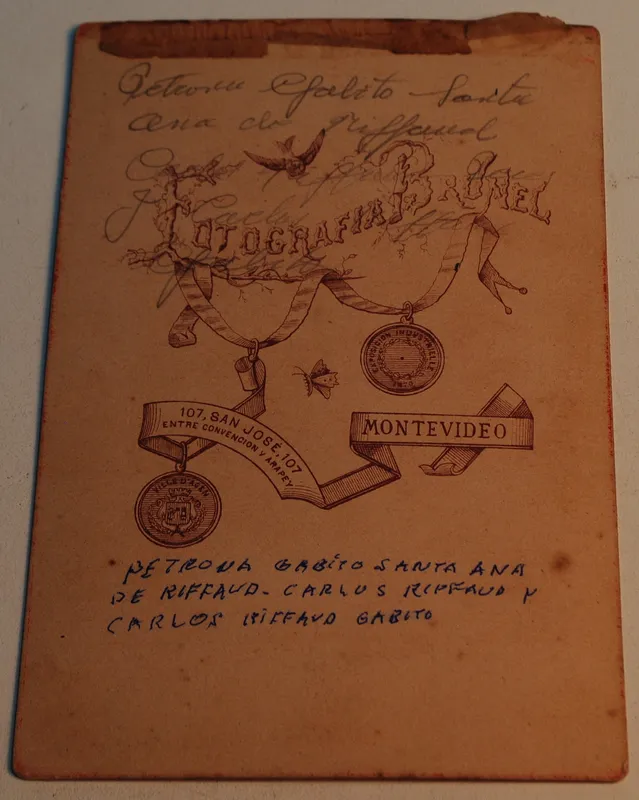 Petrona Gabito Santa
Ana de Riffaud
Carlos Riffaud
y Carlos Riffaud
Gabito
FOTOGRAFIA BRUNEL
EXPOSITION INDUSTRIELLE
107, SAN JOSÉ, 107
ENTRE CONVENCION Y ARAPEY
MONTEVIDEO
VILLE D'AGEN
PETRONA GABITO SANTA ANA
DE RIFFAUD - CARLOS RIFFAUD Y
CARLOS RIFFAUD GABITO